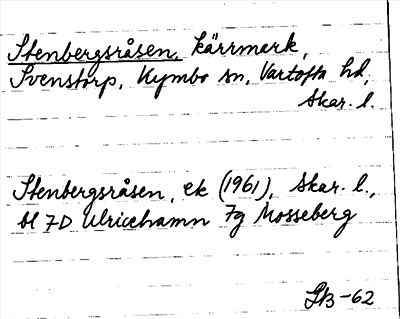 Stenbergsråsen, kärrmark,
Svenstorp, Kymbo sn, Vartofta hd,
Skar. l.
Stenbergsråsen, ek (1961), Skar. l.,
bl 7D Ulricehamn 7g Mosseberg
GB-62